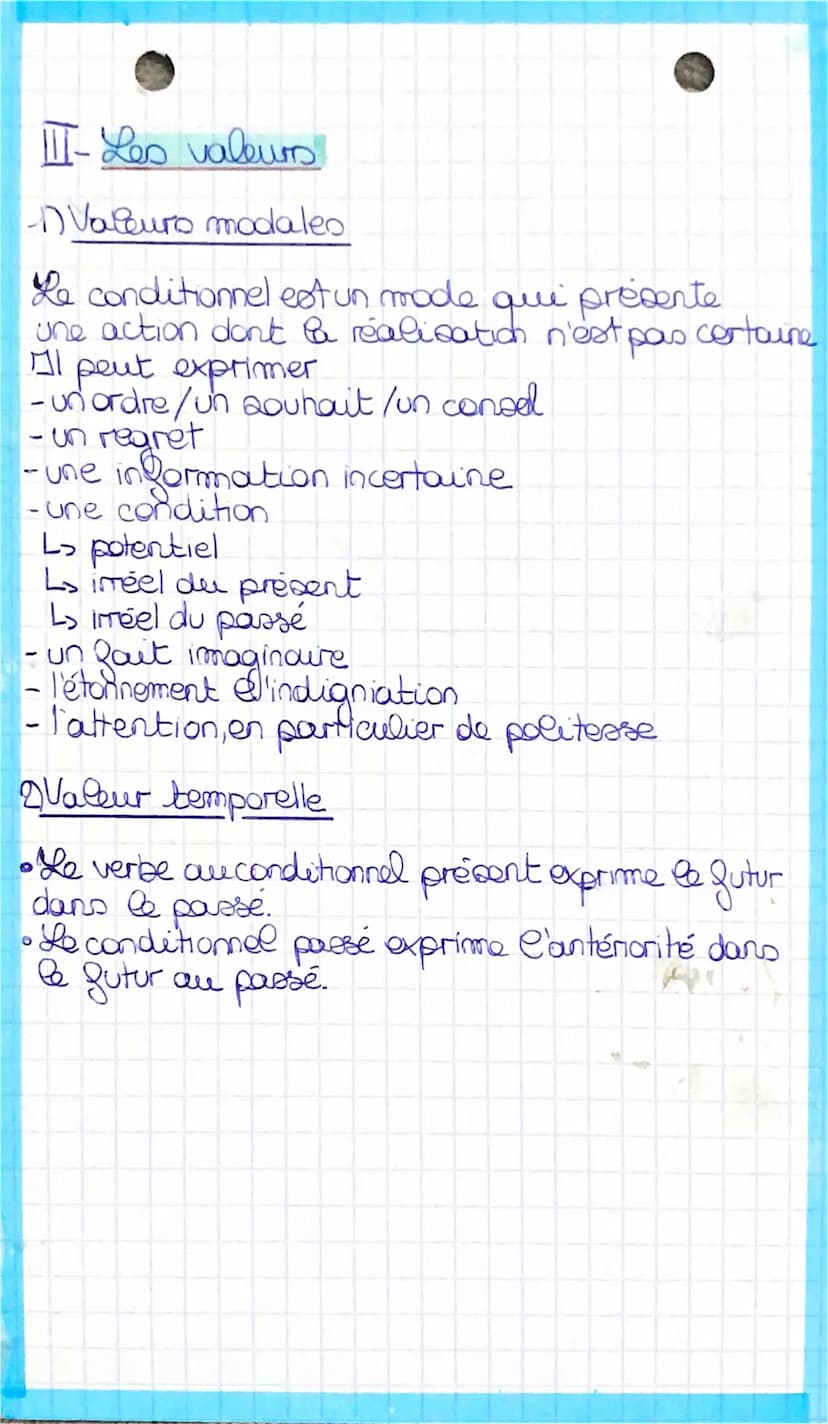 III- Les valeurs
1) Valeurs modales
Le conditionnel est un mode qui présente
une action dont la réalisation n'est pas certaine
Il peut exprimer
- un ordre / un souhait / un conseil
- un regret
- une information incertaine
- une condition
↳ potentiel
↳ irréel du présent
↳ irréel du passé
- un fait imaginaire
- l'étonnement & l'indigniation
- l'attention, en particulier de politesse
2) Valeur temporelle
• Le verbe au conditionnel présent exprime le futur
dans le passé.
• Le conditionnel passé exprime l'antériorité dans
le futur au passé.